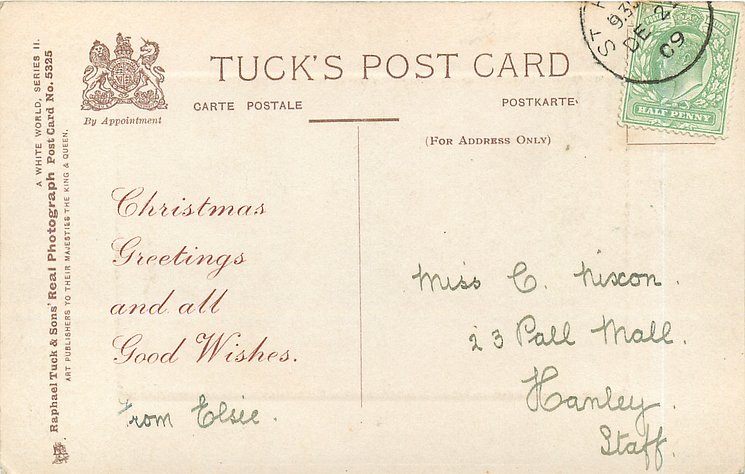 A WHITE WORLD, SERIES II.
Raphael Tuck & Sons' Real Photograph Post Card No. 5325
ART PUBLISHERS TO THEIR MAJESTIES THE KING & QUEEN.
By Appointment
TUCK'S POST CARD
CARTE POSTALE
POSTKARTE
(FOR ADDRESS ONLY)
HALF PENNY
DE 2
09
Christmas
Greetings
and all
Good Wishes.
From Elsie.
Miss C. Nixon.
23 Pall Mall.
Hanley.
Staff.